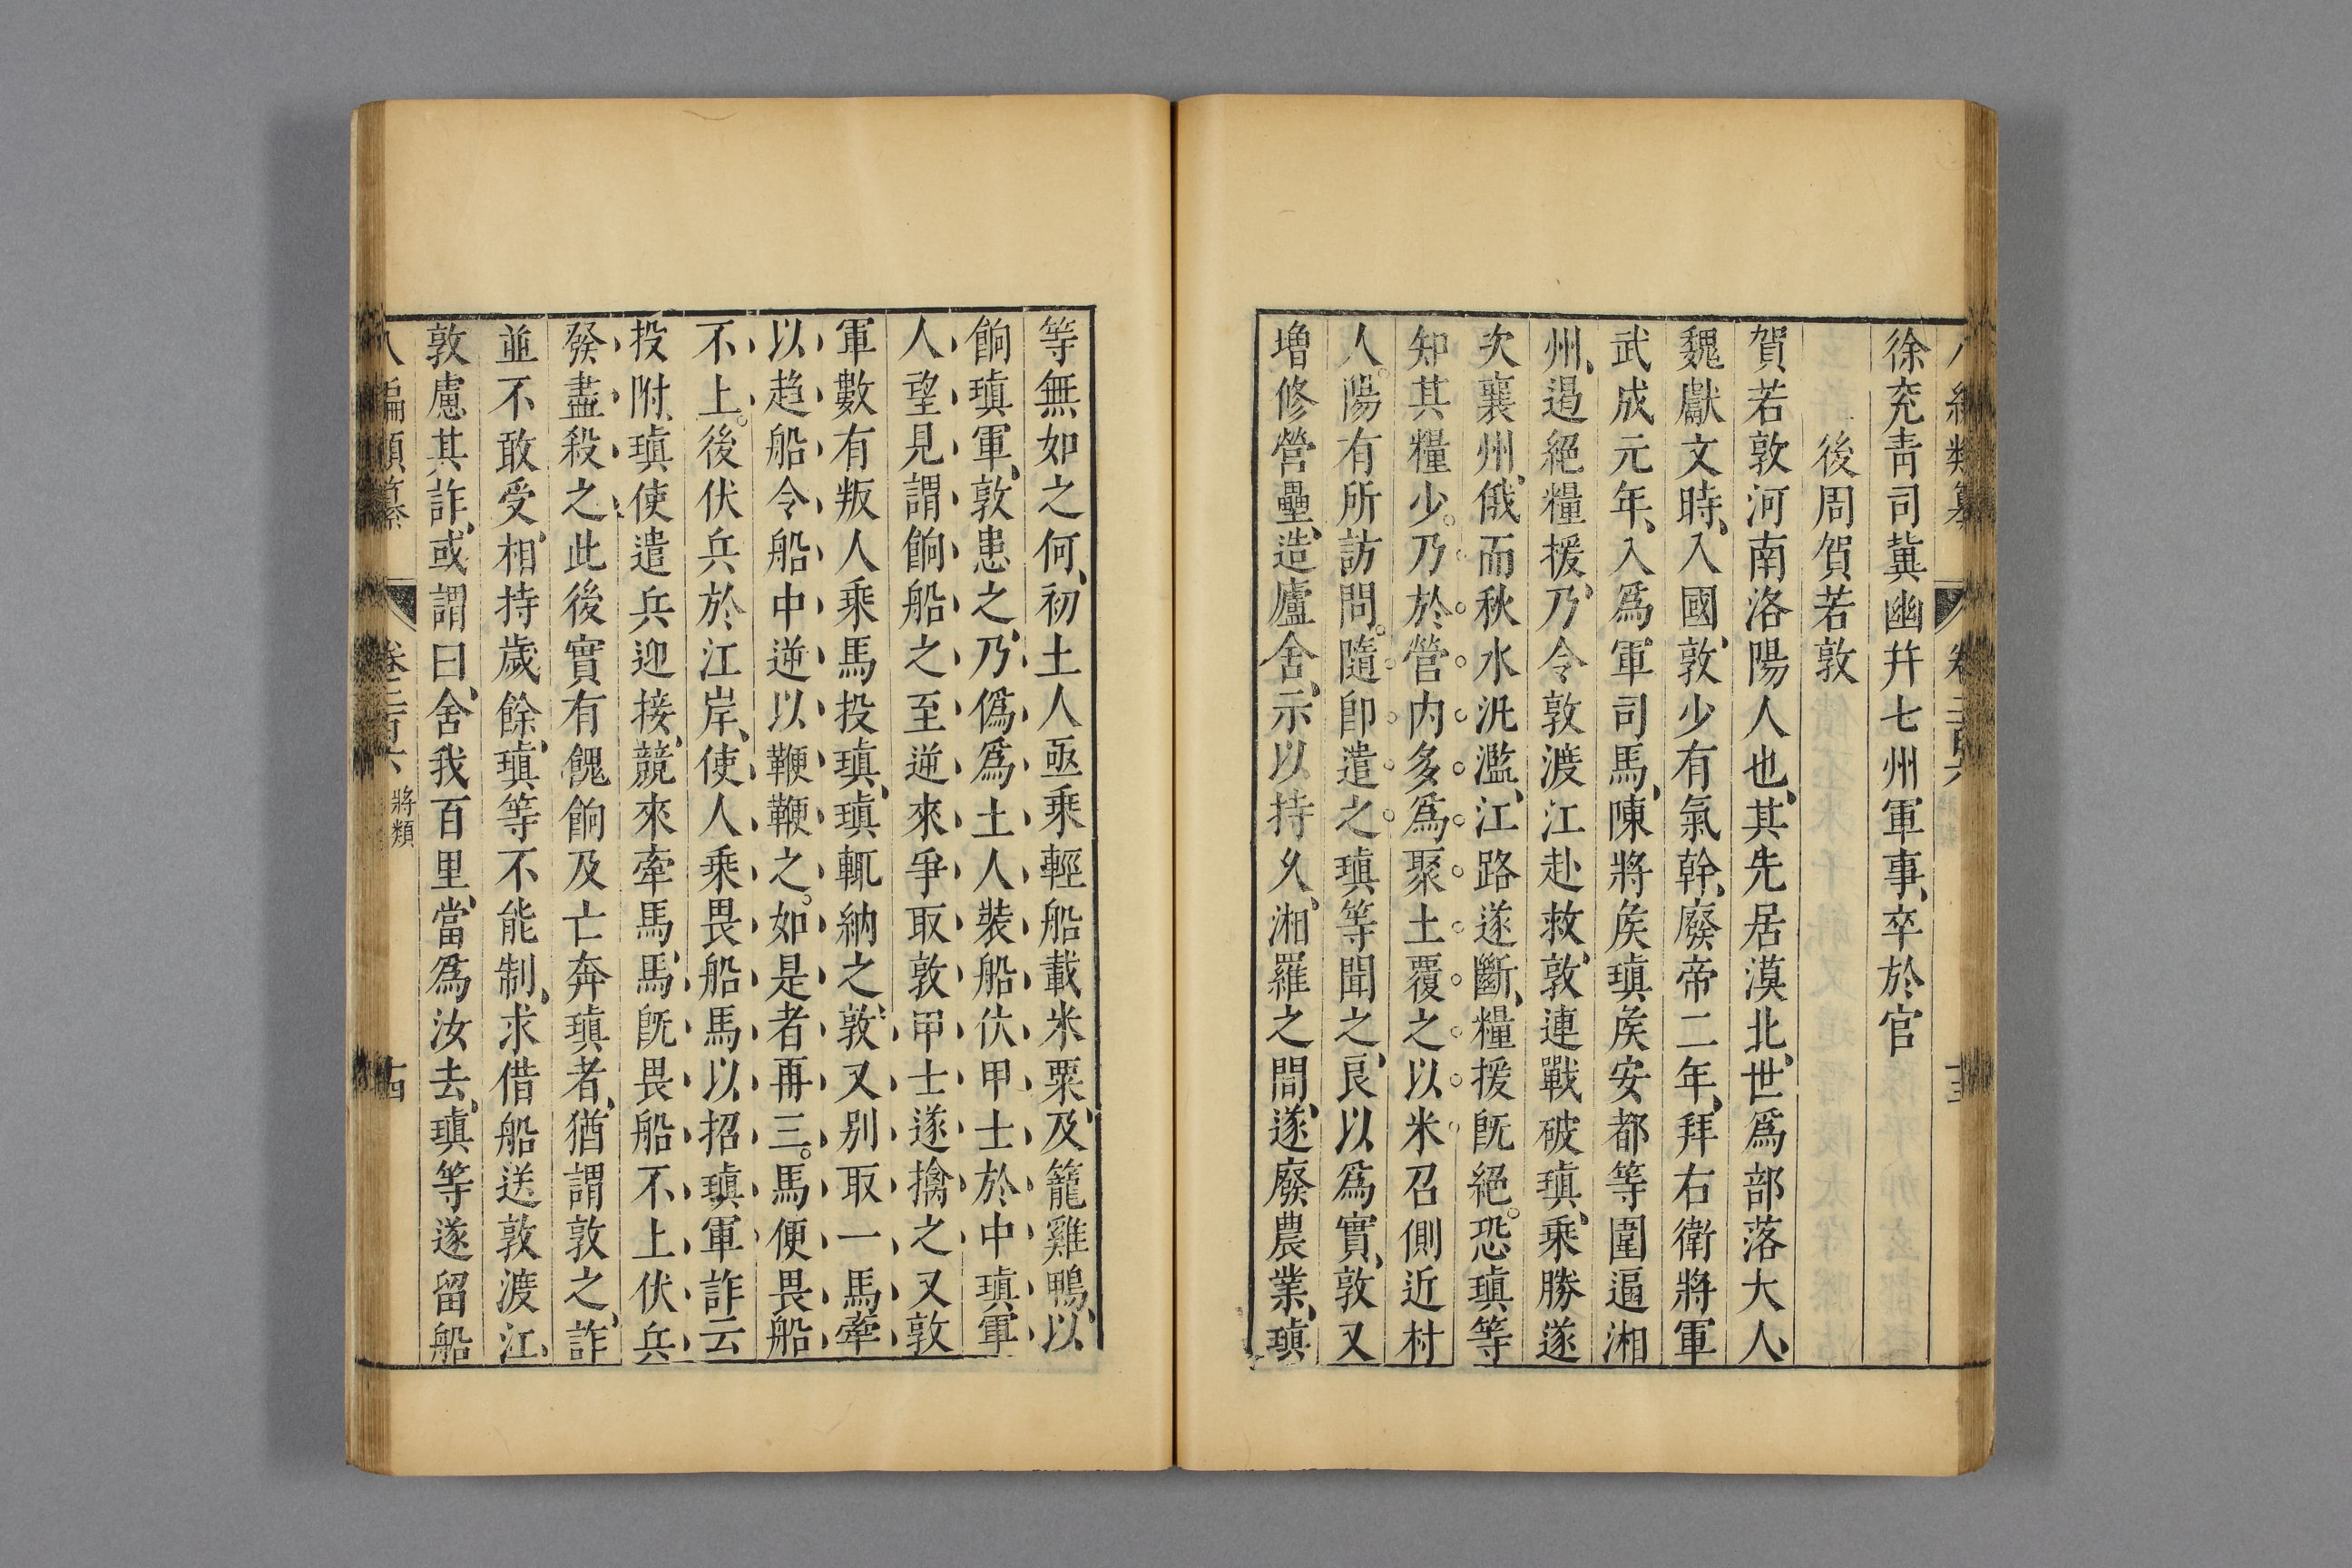 徐兗青司冀幽幷七州軍事、卒於官
後周賀若敦
賀若敦河南洛陽人也、其先居漠北、世爲部落大人、
魏獻文時、入國、敦少有氣幹、廢帝二年、拜右衛將軍
武成元年、入爲軍司馬、陳將矦瑱矦安都等圍逼湘
州、遏絕糧援、乃令敦渡江赴救、敦連戰破瑱、乘勝遂
次襄州、俄而秋水汎濫、江路遂斷、糧援旣絕。恐瑱等
知其糧少。乃於營内多爲聚土覆之以米召側近村
人。陽有所訪問。隨卽遣之瑱等聞之、良以爲實、敦又
增修營壘、造廬舍、示以持久、湘羅之間、遂廢農業、瑱
等無如之何、初土人亟乘輕船載米粟、及籠雞鴨、以
餉瑱軍、敦患之、乃僞爲土人裝船伏甲士於中瑱軍
人望見謂餉船之至逆來爭取敦甲士遂擒之又敦
軍數有叛人乘馬投瑱、瑱輒納之、敦又别取一馬牽
以趋船令船中逆以鞭鞭之。如是者再三。馬便畏船
不上。後伏兵於江岸、使人乘畏船馬以招瑱軍詐云
投附、瑱使遣兵迎接、競來牽馬、馬旣畏船不上伏兵
發盡殺之此後實有餽餉及亡奔瑱者、猶謂敦之、詐
並不敢受、相持歲餘、瑱等不能制、求借船送敦渡江、
敦慮其詐、或謂曰、舍我百里、當爲汝去、瑱等遂留船
八編類纂 卷二百六 將類 十四